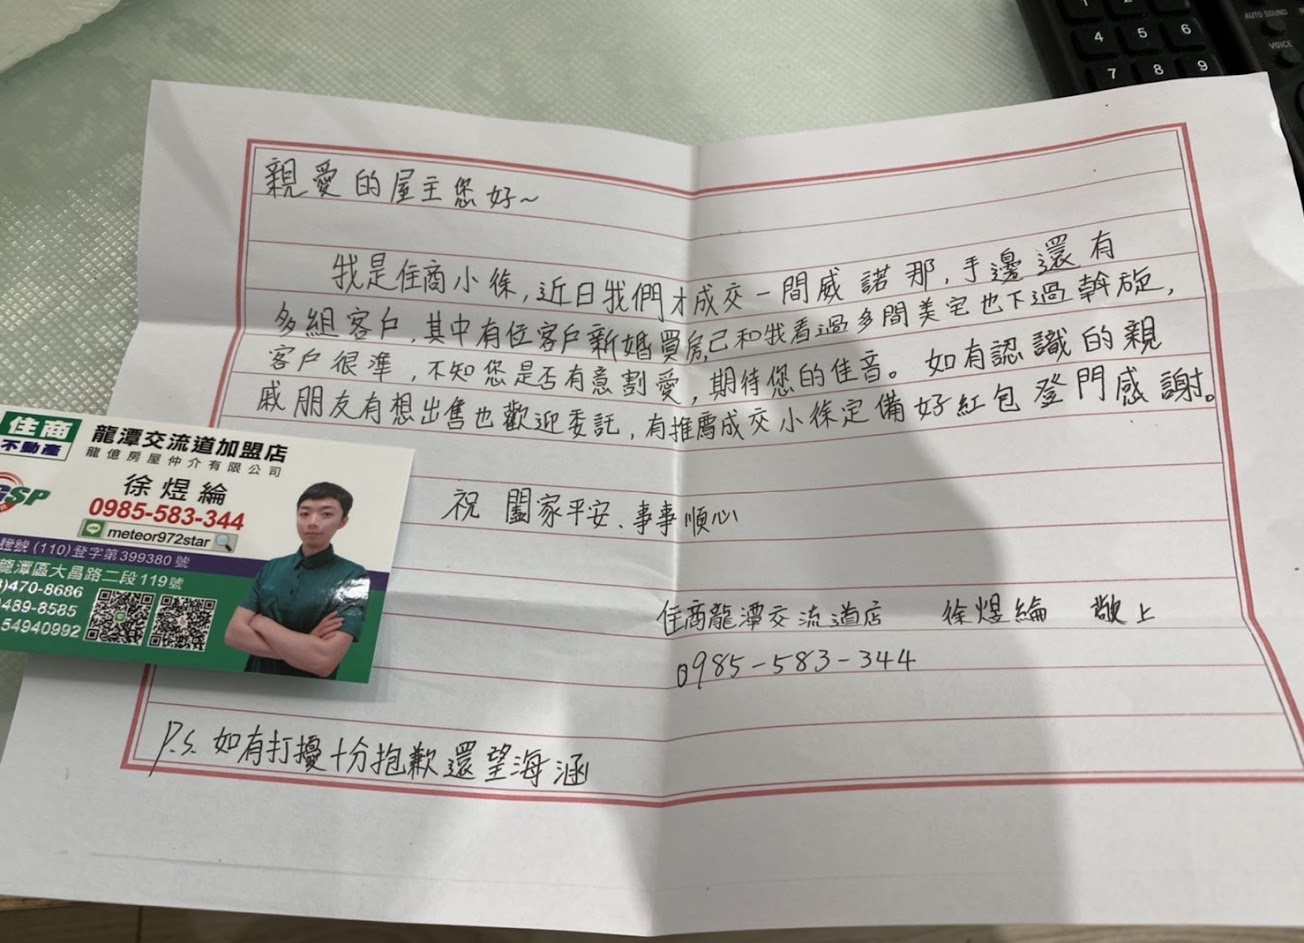 親愛的屋主您好~
我是住商小徐,近日我們才成交一間威諾那,手邊還有
多組客戶,其中有位客戶新婚買房,已和我看過多間美宅也下過斡旋,
客戶很準,不知您是否有意割愛,期待您的佳音。如有認識的親
戚朋友有想出售也歡迎委託,有推薦成交小徐定備好紅包登門感謝。
祝 闔家平安、事事順心
住商龍潭交流道店 徐煜綸 敬上
0985-583-344
P.S. 如有打擾十分抱歉還望海涵
住商
不動產
龍潭交流道加盟店
龍億房屋仲介有限公司
徐煜綸
0985-583-344
meteor972star
證號(110)登字第399380號
龍潭區大昌路二段119號
)470-8686
489-8585
54940992
GSP
1
4 5 6
7 8 9
AUTO SOUND
VOICE